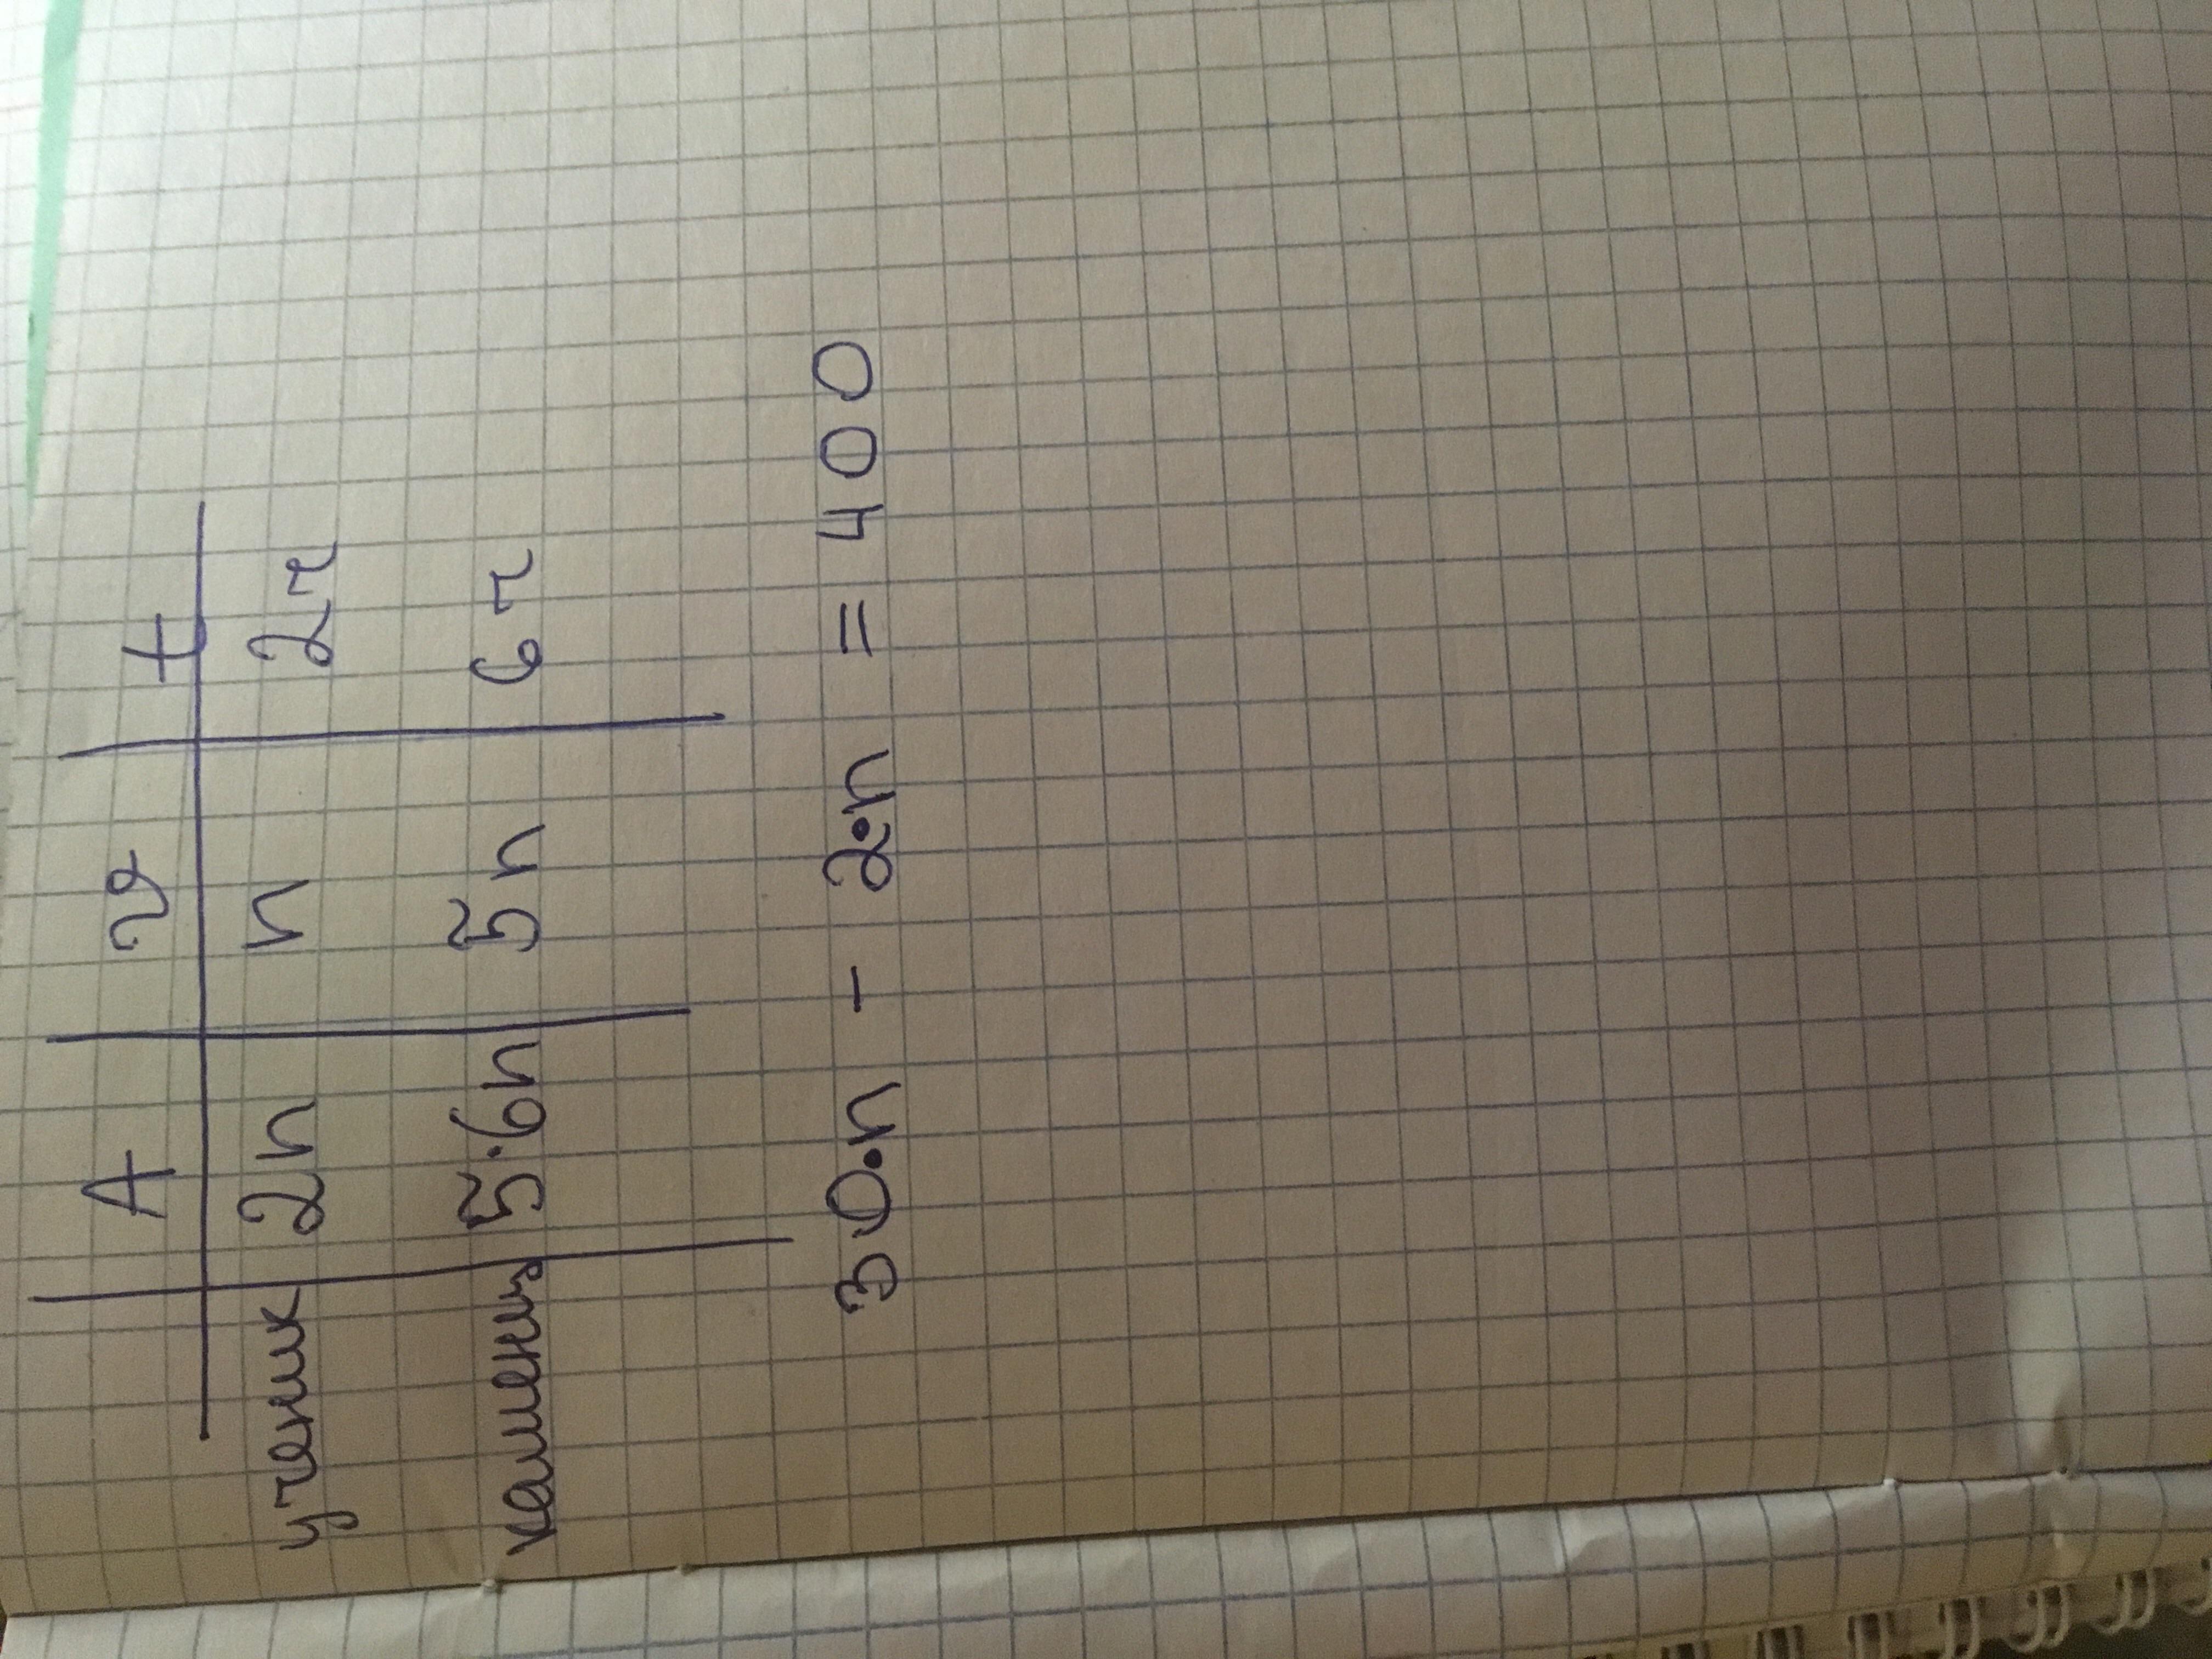 A v t
ученик 2n n 2ч
каменщ 5·6n 5n 6ч
30·n - 2·n = 400